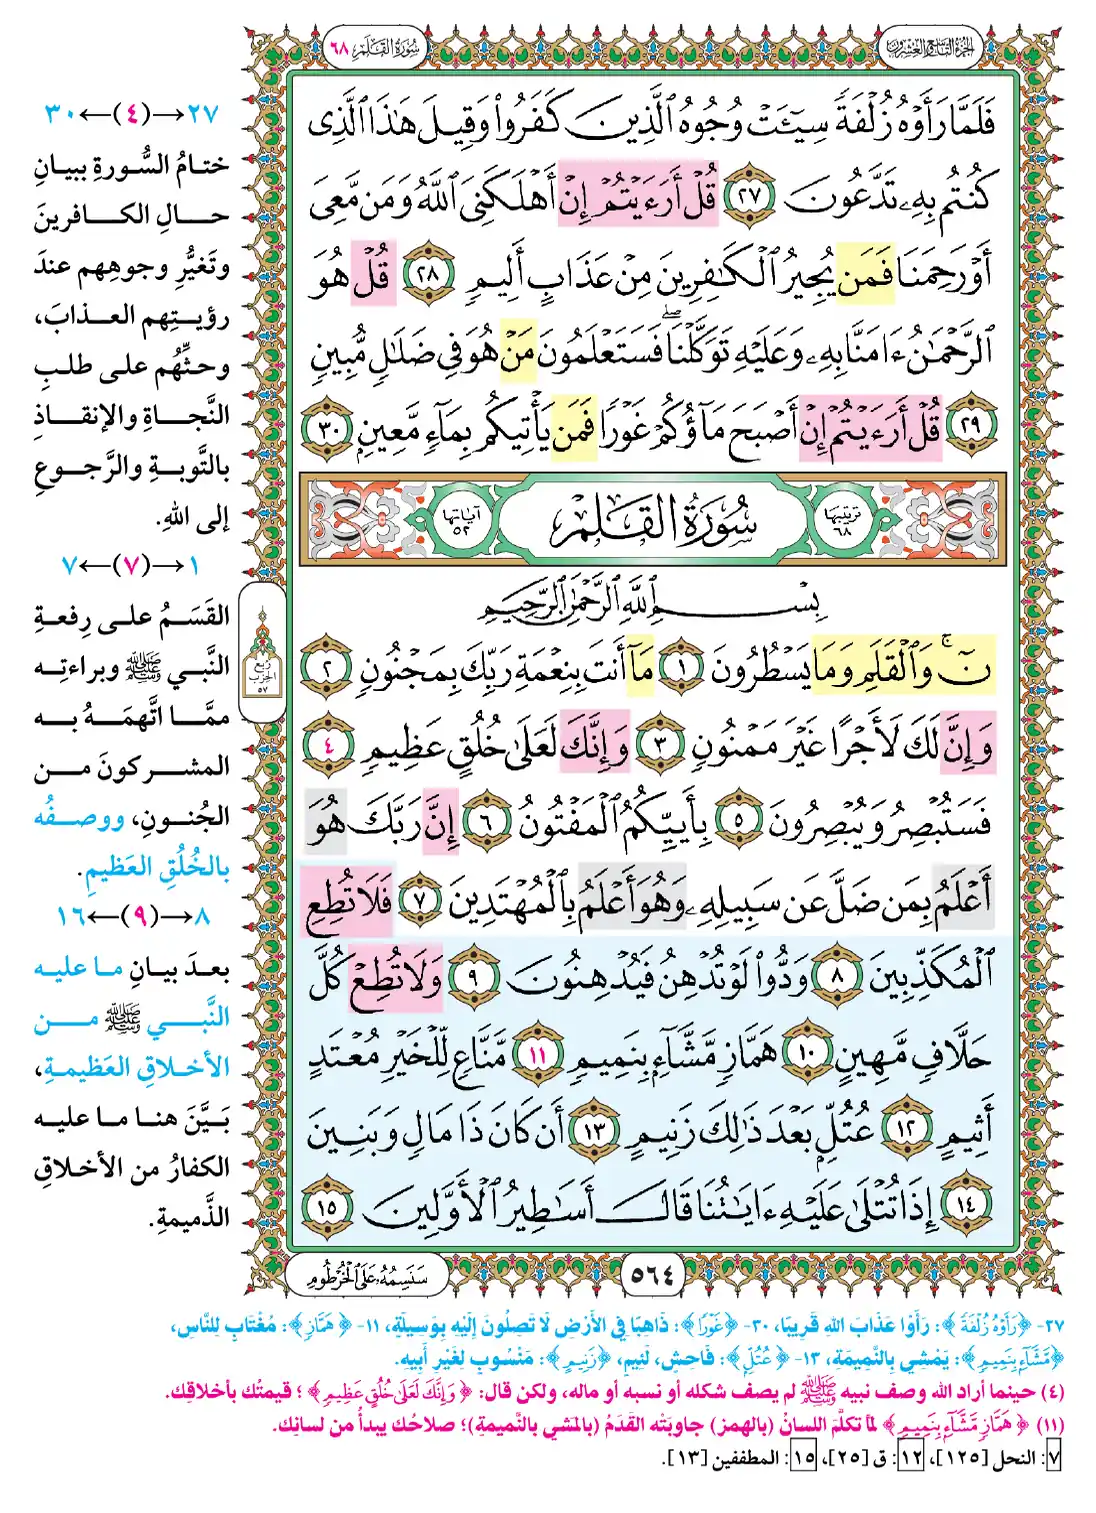 الجزء التاسع والعشرون
سُورَةُ القَلَمِ ٦٨
فَلَمَّا رَأَوْهُ زُلْفَةً سِيٓـَٔتْ وُجُوهُ ٱلَّذِينَ كَفَرُوا۟ وَقِيلَ هَٰذَا ٱلَّذِى
كُنتُم بِهِۦ تَدَّعُونَ ٢٧ قُلْ أَرَءَيْتُمْ إِنْ أَهْلَكَنِىَ ٱللَّهُ وَمَن مَّعِىَ
أَوْ رَحِمَنَا فَمَن يُجِيرُ ٱلْكَٰفِرِينَ مِنْ عَذَابٍ أَلِيمٍ ٢٨ قُلْ هُوَ
ٱلرَّحْمَٰنُ ءَامَنَّا بِهِۦ وَعَلَيْهِ تَوَكَّلْنَا ۖ فَسَتَعْلَمُونَ مَنْ هُوَ فِى ضَلَٰلٍ مُّبِينٍ
٢٩ قُلْ أَرَءَيْتُمْ إِنْ أَصْبَحَ مَآؤُكُمْ غَوْرًا فَمَن يَأْتِيكُم بِمَآءٍ مَّعِينٍۭ ٣٠
ترتيبها ٦٨ سُورَةُ القَلَمِ آياتها ٥٢
بِسْمِ ٱللَّهِ ٱلرَّحْمَٰنِ ٱلرَّحِيمِ
نٓ ۚ وَٱلْقَلَمِ وَمَا يَسْطُرُونَ ١ مَآ أَنتَ بِنِعْمَةِ رَبِّكَ بِمَجْنُونٍ ٢
وَإِنَّ لَكَ لَأَجْرًا غَيْرَ مَمْنُونٍ ٣ وَإِنَّكَ لَعَلَىٰ خُلُقٍ عَظِيمٍ ٤
فَسَتُبْصِرُ وَيُبْصِرُونَ ٥ بِأَييِّكُمُ ٱلْمَفْتُونُ ٦ إِنَّ رَبَّكَ هُوَ
أَعْلَمُ بِمَن ضَلَّ عَن سَبِيلِهِۦ وَهُوَ أَعْلَمُ بِٱلْمُهْتَدِينَ ٧ فَلَا تُطِعِ
ٱلْمُكَذِّبِينَ ٨ وَدُّوا۟ لَوْ تُدْهِنُ فَيُدْهِنُونَ ٩ وَلَا تُطِعْ كُلَّ
حَلَّافٍ مَّهِينٍ ١٠ هَمَّازٍ مَّشَّآءٍۭ بِنَمِيمٍ ١١ مَّنَّاعٍ لِّلْخَيْرِ مُعْتَدٍ
أَثِيمٍ ١٢ عُتُلٍّۭ بَعْدَ ذَٰلِكَ زَنِيمٍ ١٣ أَن كَانَ ذَا مَالٍ وَبَنِينَ
١٤ إِذَا تُتْلَىٰ عَلَيْهِ ءَايَٰتُنَا قَالَ أَسَٰطِيرُ ٱلْأَوَّلِينَ ١٥
٥٦٤
سَنَسِمُهُۥ عَلَى ٱلْخُرْطُومِ
رُبع
الحِزب
٥٧
٢٧→(٤)←٣٠
ختامُ السُّورةِ ببيانِ
حالِ الكافرينَ
وتَغيُّرِ وجوهِهم عندَ
رؤيتِهم العذابَ،
وحثِّهُم على طلبِ
النَّجاةِ والإنقاذِ
بالتَّوبةِ والرَّجوعِ
إلى اللهِ.
١→(٧)←٧
القَسَمُ على رِفعةِ
النَّبي ﷺ وبراءتِه
ممَّا اتَّهمَهُ به
المشركونَ من
الجُنونِ، ووصفُه
بالخُلُقِ العَظيمِ.
٨→(٩)←١٦
بعدَ بيانِ ما عليه
النَّبي ﷺ من
الأخلاقِ العَظيمةِ،
بَيَّنَ هنا ما عليه
الكفارُ من الأخلاقِ
الذَّميمةِ.
٢٧- ﴿رَأَوْهُ زُلْفَةً﴾: رَأَوْا عَذَابَ اللهِ قَرِيبًا، ٣٠- ﴿غَوْرًا﴾: ذَاهِبًا فِي الأَرْضِ لَا تَصِلُونَ إِلَيْهِ بِوَسِيلَةٍ، ١١- ﴿هَمَّازٍ﴾: مُغْتَابٍ لِلنَّاسِ،
﴿مَّشَّآءٍۭ بِنَمِيمٍ﴾: يَمْشِي بِالنَّمِيمَةِ، ١٣- ﴿عُتُلٍّۭ﴾: فَاحِشٍ، لَئِيمٍ، ﴿زَنِيمٍ﴾: مَنْسُوبٍ لِغَيْرِ أَبِيهِ.
(٤) حينما أراد الله وصف نبيه ﷺ لم يصف شكله أو نسبه أو ماله، ولكن قال: ﴿وَإِنَّكَ لَعَلَىٰ خُلُقٍ عَظِيمٍ﴾؛ قيمتُك بأخلاقِك.
(١١) ﴿هَمَّازٍ مَّشَّآءٍۭ بِنَمِيمٍ﴾ لمّا تكلَّمَ اللسانُ (بالهمزِ) جاوبَتْه القدَمُ (بالمشيِ بالنَّميمةِ)؛ صلاحُك يبدأُ من لسانِك.
٧: النحل [١٢٥]، ١٢: ق [٢٥]، ١٥: المطففين [١٣].